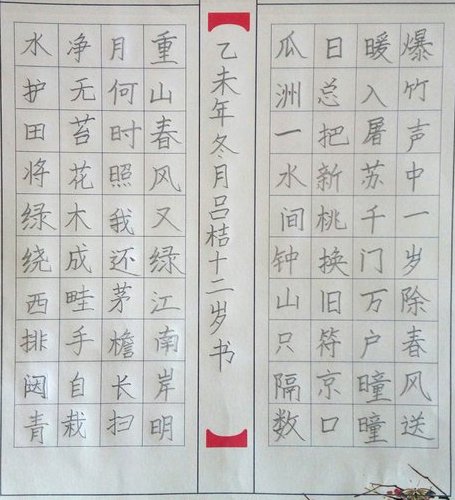 爆竹声中一岁除春风送
暖入屠苏千门万户曈曈
日总把新桃换旧符京口
瓜洲一水间钟山只隔数
乙未年冬月吕桔十二岁书
重山春风又绿江南岸明
月何时照我还茅檐长扫
净无苔花木成畦手自栽
水护田将绿绕西排闼青